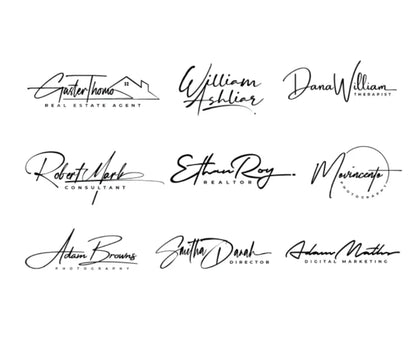 GusterThomo
REAL ESTATE AGENT
William
Ashliar.
DanaWilliam
THERAPIST
Robert Mark
CONSULTANT
EthanRoy.
REALTOR
Movincento
PHOTOGRAPHY
Adam Browns
PHOTOGRAPHY
Smitha Danah
DIRECTOR
Adam Maths
DIGITAL MARKETING